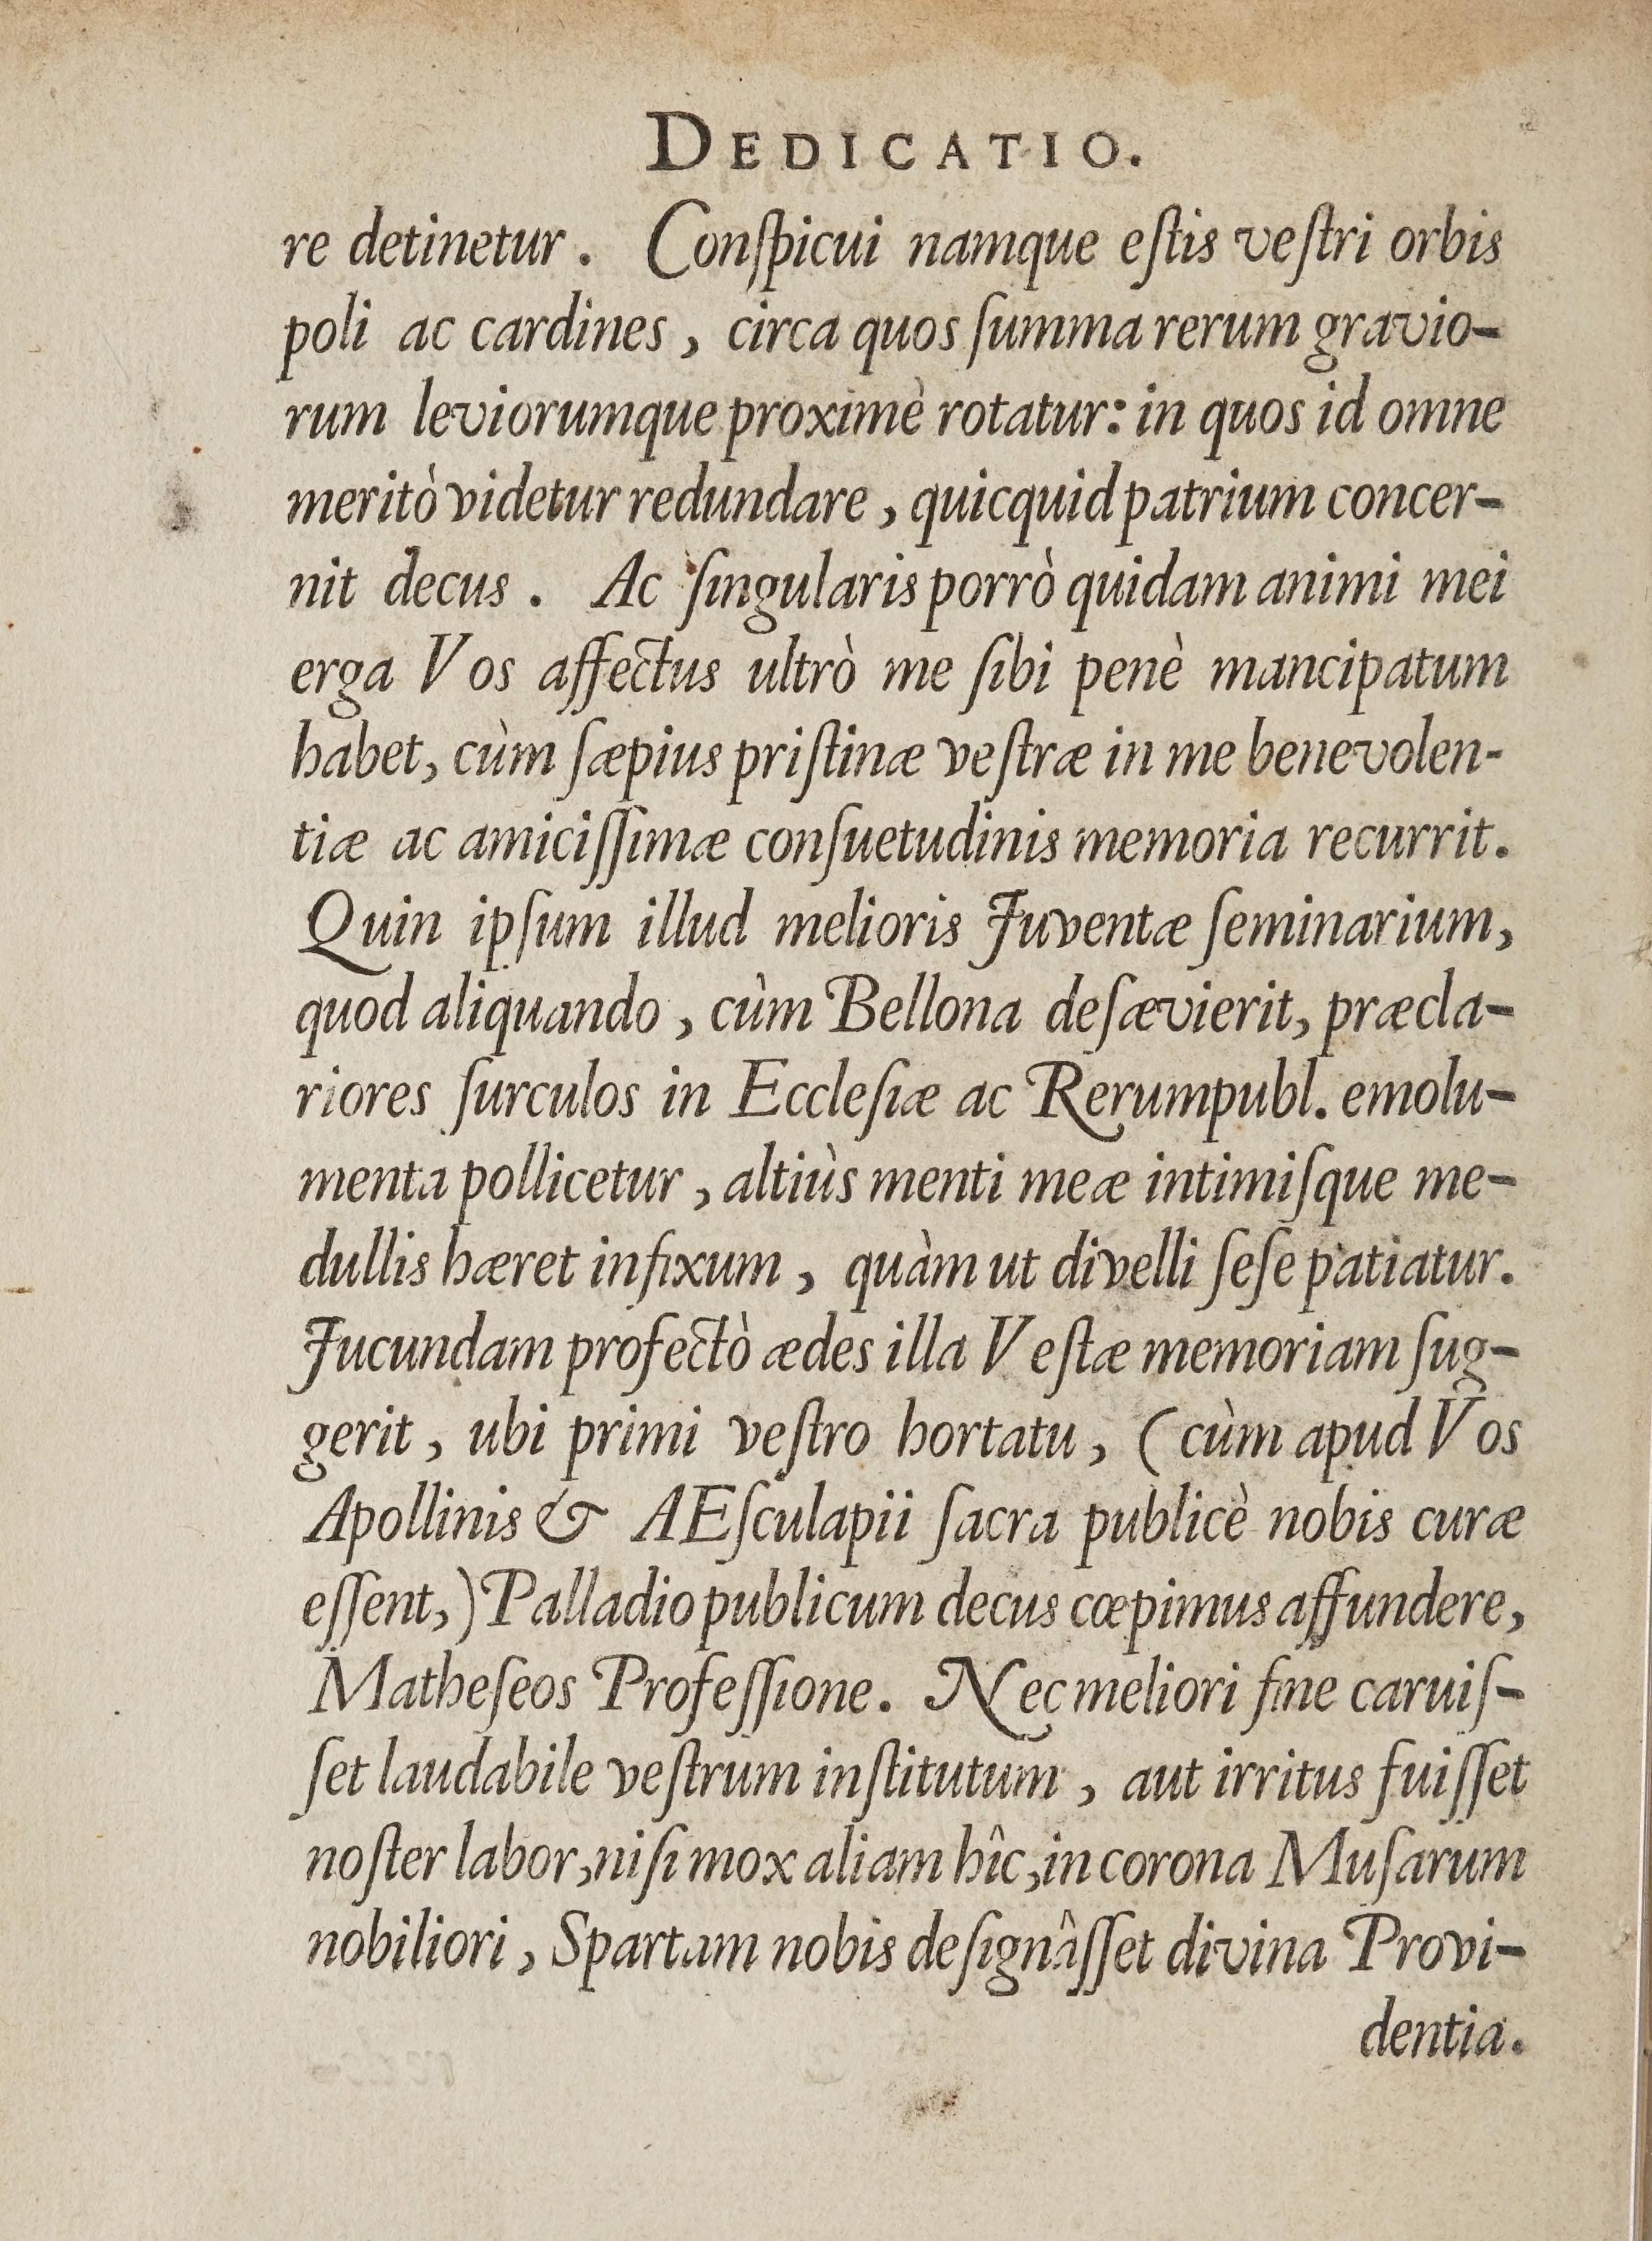 DEDICATIO.
re detinetur. Conſpicui namque eſtis veſtri orbis
poli ac cardines, circa quos ſumma rerum gravio-
rum leviorumque proximè rotatur: in quos id omne
meritò videtur redundare, quicquid patrium concer-
nit decus. Ac ſingularis porrò quidam animi mei
erga Vos affectus ultrò me ſibi penè mancipatum
habet, cùm ſæpius priſtinæ veſtræ in me benevolen-
tiæ ac amiciſſimæ conſuetudinis memoria recurrit.
Quin ipſum illud melioris Juventæ ſeminarium,
quod aliquando, cùm Bellona deſævierit, præcla-
riores ſurculos in Eccleſiæ ac Rerumpubl. emolu-
menta pollicetur, altiùs menti meæ intimiſque me-
dullis hæret infixum, quàm ut divelli ſeſe patiatur.
Jucundam profectò ædes illa Veſtæ memoriam ſug-
gerit, ubi primi veſtro hortatu, (cùm apud Vos
Apollinis & AEſculapii ſacra publicè nobis curæ
eſſent,) Palladio publicum decus cœpimus affundere,
Matheſeos Profeſſione. Nec meliori fine caruiſ-
ſet laudabile veſtrum inſtitutum, aut irritus fuiſſet
noſter labor, niſi mox aliam hîc, in corona Muſarum
nobiliori, Spartam nobis deſignâſſet divina Provi-
dentia.